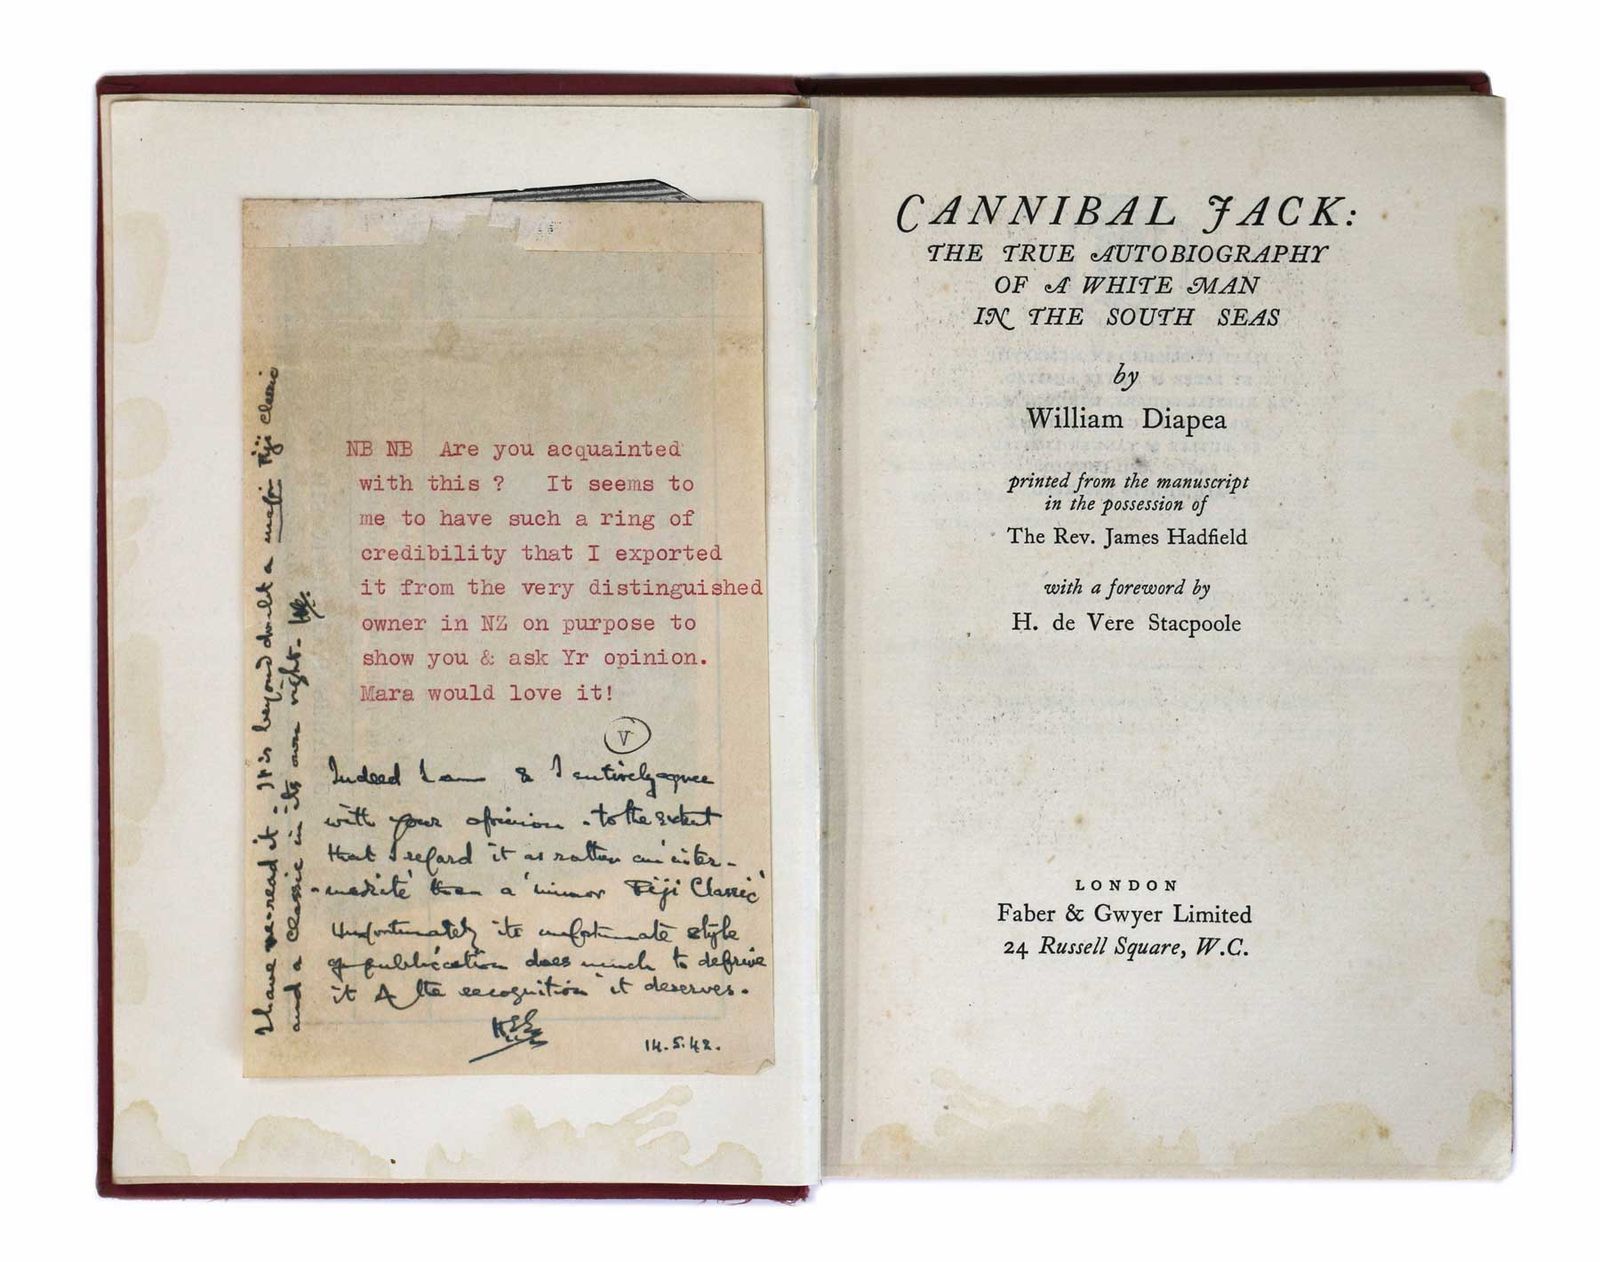 NB NB Are you acquainted
with this ? It seems to
me to have such a ring of
credibility that I exported
it from the very distinguished
owner in NZ on purpose to
show you & ask Yr opinion.
Mara would love it!
V
Indeed I am & I entirely agree
with your opinion - to the extent
that I regard it as rather an 'inter-
-mediate' than a 'minor Fiji Classic'
Unfortunately its unfortunate style
of publication does much to deprive
it of the recognition it deserves.
14.5.42.
I have re-read it: It is beyond doubt a major Fiji Classic
and a classic in its own right.
CANNIBAL JACK:
THE TRUE AUTOBIOGRAPHY
OF A WHITE MAN
IN THE SOUTH SEAS
by
William Diapea
printed from the manuscript
in the possession of
The Rev. James Hadfield
with a foreword by
H. de Vere Stacpoole
LONDON
Faber & Gwyer Limited
24 Russell Square, W.C.